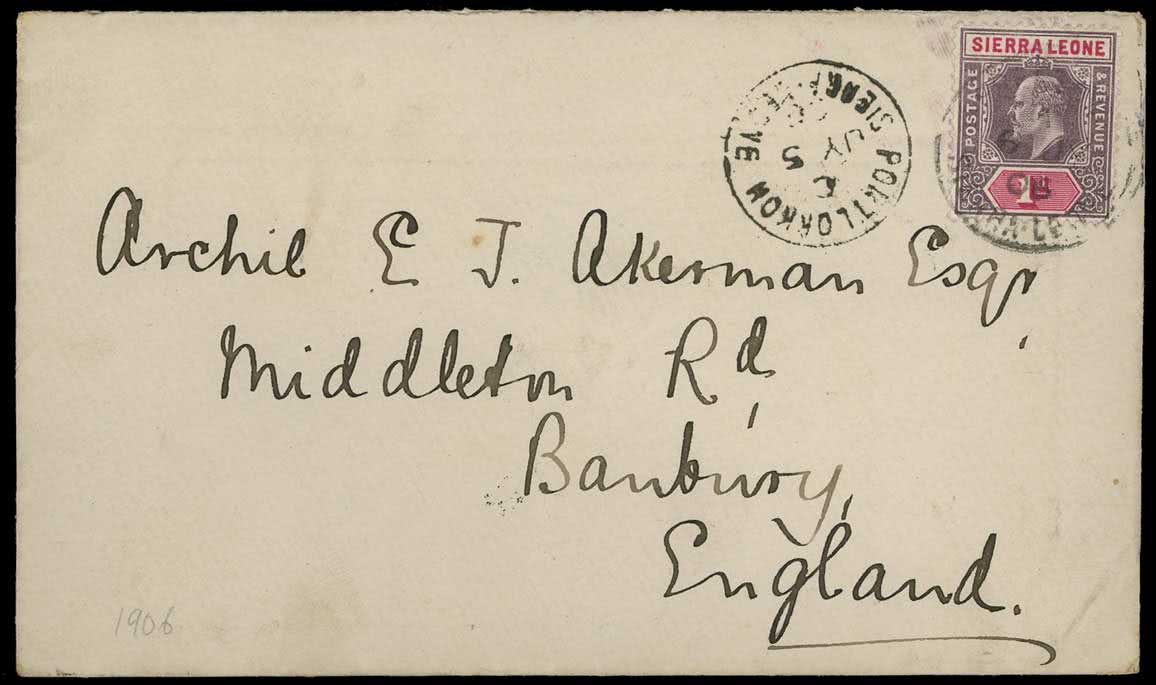 SIERRA LEONE
POSTAGE
& REVENUE
1D
PORT LOKKOH
SIERRA LEONE
JY
5
Archie E J. Akerman Esqr
Middleton Rd,
Banbury,
England.
1906